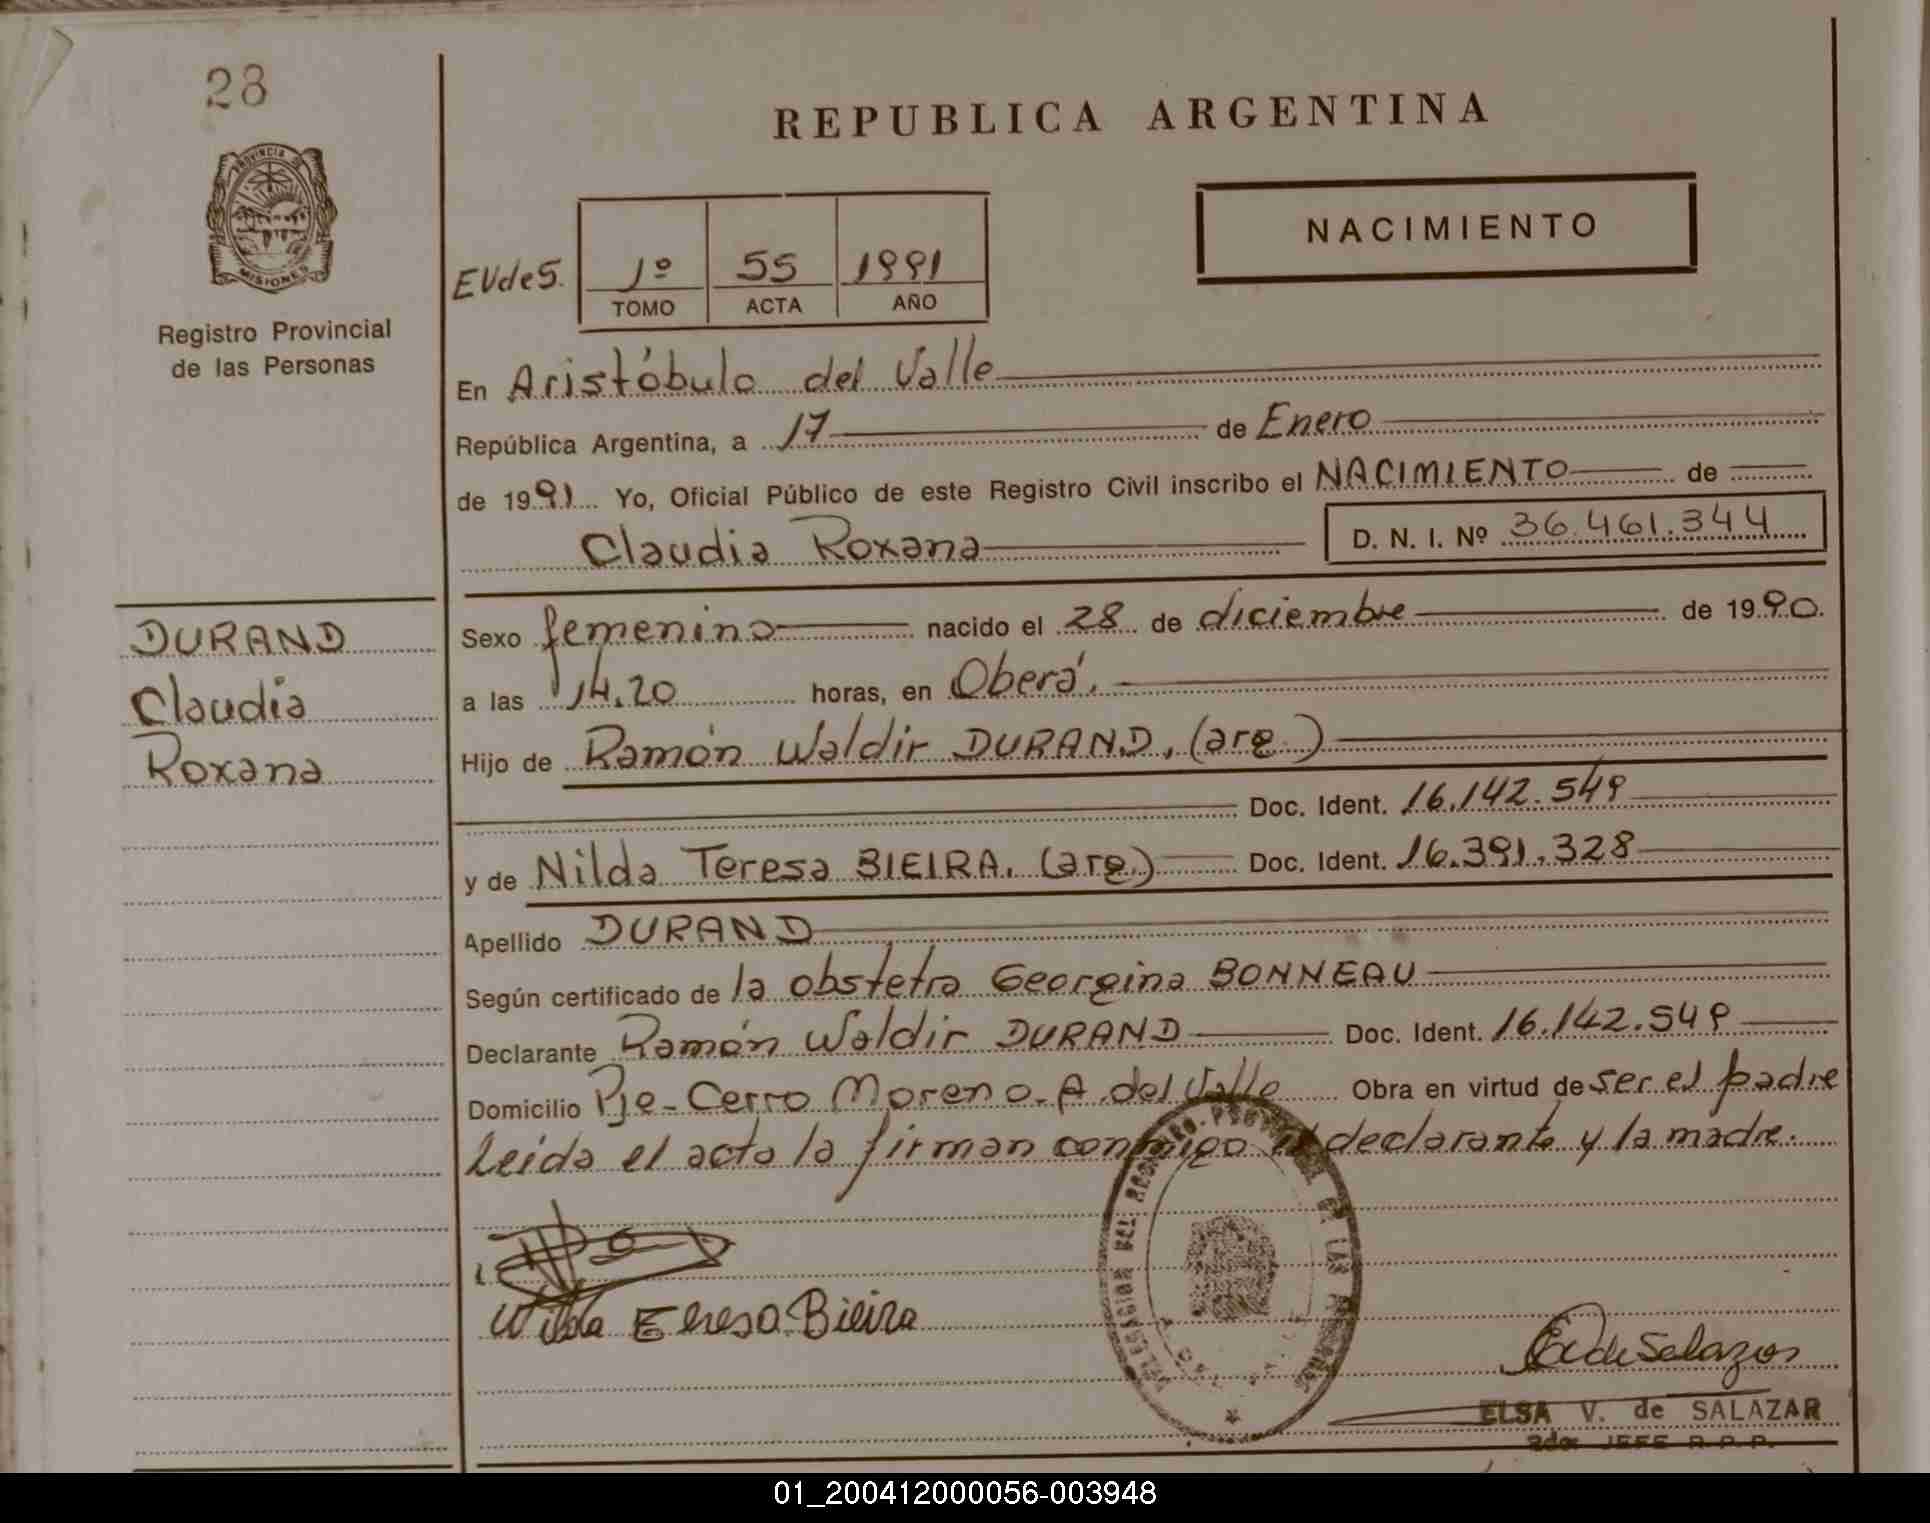 28
REPUBLICA ARGENTINA
PROVINCIA DE
MISIONES
Registro Provincial
de las Personas
NACIMIENTO
EVdeS. 1º 55 1991
TOMO ACTA AÑO
En Aristóbulo del Valle
República Argentina, a 17 de Enero
de 1991 Yo, Oficial Público de este Registro Civil inscribo el NACIMIENTO de
Claudia Roxana D. N. I. Nº 36.461.344
DURAND
Claudia
Roxana
Sexo femenino nacido el 28 de diciembre de 1990.
a las 14.20 horas, en Oberá.
Hijo de Ramón Waldir DURAND, (arg.)
Doc. Ident. 16.142.549
y de Nilda Teresa BIEIRA. (arg.) Doc. Ident. 16.391.328
Apellido DURAND
Según certificado de la obstetra Georgina BONNEAU
Declarante Ramón Waldir DURAND Doc. Ident. 16.142.549
Domicilio Pje- Cerro Moreno- A. del Valle Obra en virtud de ser el padre
Leida el acta la firman conmigo el declarante y la madre.
DELEGACION DEL REGISTRO PROVINCIAL DE LAS PERSONAS
Nilda Teresa Bieira
EVdeSalazar
ELSA V. de SALAZAR
2do. JEFE R.P.P.
01_200412000056-003948